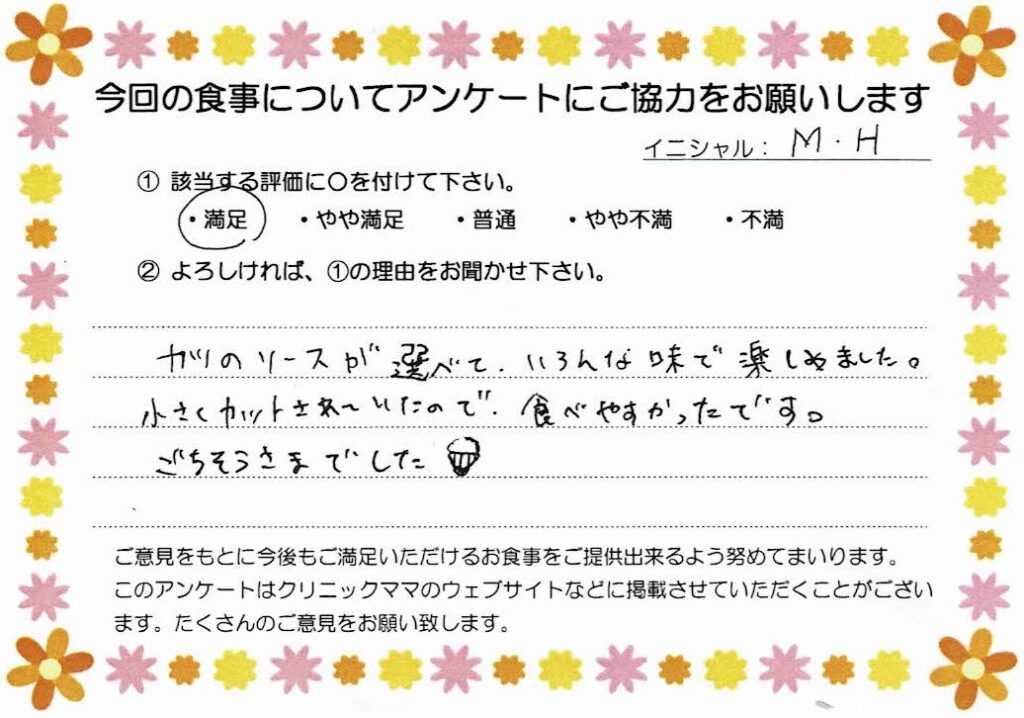 今回の食事についてアンケートにご協力をお願いします
イニシャル： M・H
① 該当する評価に〇を付けて下さい。
・満足 ・やや満足 ・普通 ・やや不満 ・不満
② よろしければ、①の理由をお聞かせ下さい。
カツのソースが選べて、いろんな味で楽しめました。
小さくカットされていたので、食べやすかったです。
ごちそうさまでした
ご意見をもとに今後もご満足いただけるお食事をご提供出来るよう努めてまいります。
このアンケートはクリニックママのウェブサイトなどに掲載させていただくことがござい
ます。たくさんのご意見をお願い致します。